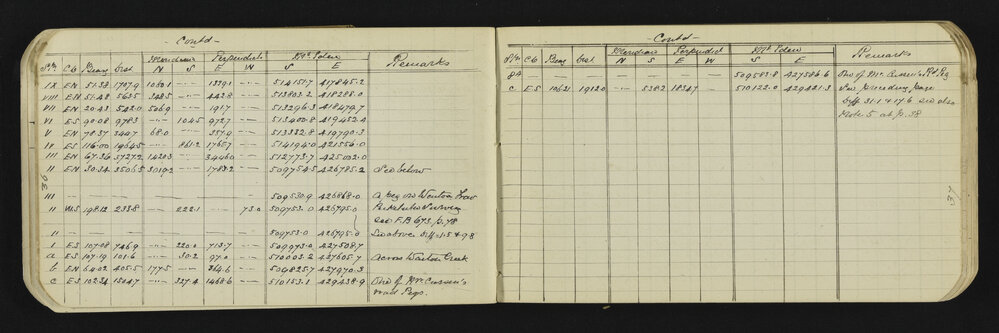 - Contd -
Meridian Perpendict. Mt. Eden
Stn. Cb Bearg Dist. N S E W S E Remarks
IX EN 51.38 1707.9 1060.1 --- 1339.1 --- 514151.7 417845.2
VIII EN 51.48 563.5 348.5 --- 442.8 --- 513803.2 418288.0
VII EN 20.43 542.0 506.9 --- 191.7 --- 513296.3 418479.7
VI ES 90.08 978.3 --- 104.5 972.7 --- 513400.8 419452.4
V EN 78.37 344.7 68.0 --- 337.9 --- 513332.8 419790.3
IV ES 116.00 1964.5 --- 861.2 1765.7 --- 514194.0 421556.0
III EN 67.36 3727.2 1420.3 --- 3446.0 --- 512773.7 425002.0
II EN 30.34 3506.5 3019.2 --- 1783.2 --- 509754.5 426785.2 See below
36
III --- --- --- --- --- 509530.9 426868.0 a peg in Weiton Trav
II WS 198.12 233.8 --- 222.1 --- 73.0 509753.0 426795.0 Survey
see F.B 673. p. 78
II --- 509753.0 426795.0 See above Diff = 1.5 & 9.8
I ES 107.08 746.9 --- 220.0 713.7 509973.0 427508.7
a ES 107.19 101.6 --- 30.2 97.0 510003.2 427605.7 Across Creek
b EN 64.02 405.5 177.5 --- 364.6 --- 509825.7 427970.3
c ES 102.34 1504.7 --- 327.4 1468.6 --- 510153.1 429438.9 One of Mr. Cussen's
road Pegs.
- Contd -
Meridian Perpendict. Mt. Eden
Stn. Cb Bearg Dist. N S E W S E Remarks
84 509583.8 427586.6 One of Mr Cussen's Rd Peg
C ES 106.21 1912.0 --- 538.2 1834.7 --- 510122.0 429421.3 Vice preceding page
Diff 31.1 & 17.6 see also
Note 5 at p. 38
37